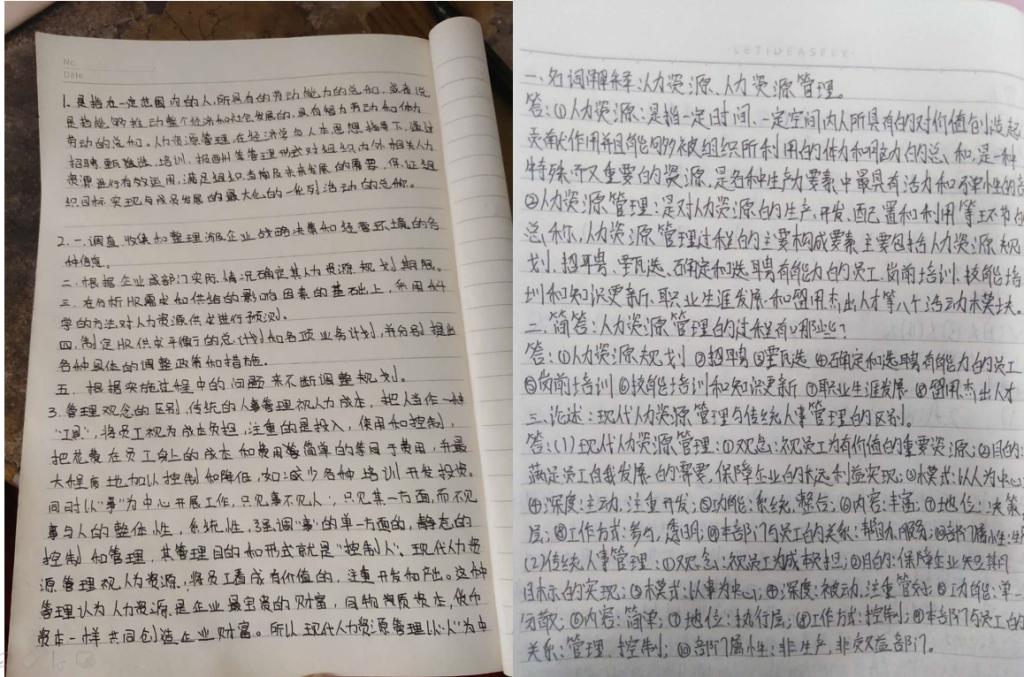 No.
Date
1.是指在一定范围内的人,所具有的劳动能力的总和。或者说
是指能够推动整个经济和社会发展的、具有智力劳动和体力
劳动的总和。人力资源管理,在经济学与人本思想指导下,通过
招聘、甄选、培训、报酬等管理形式对组织内外相关人力
资源进行有效运用,满足组织当前及未来发展的需要,保证组
织目标实现与成员发展的最大化的一系列活动的总称。
2.一.调查、收集和整理涉及企业战略决策和经营环境的各
种信息。
二.根据企业或部门实际情况确定其人力资源规划期限。
三.在分析HR需求和供给的影响因素的基础上,采用科
学的方法对人力资源供求进行预测。
四.制定HR供求平衡的总计划和各项业务计划,并分别提出
各种具体的调整政策和措施。
五.根据实施过程中的问题来不断调整规划。
3.管理观念的区别,传统的人事管理视人力成本,把人当作一种
"工具",将员工视为成本负担,注重的是投入、使用和控制,
把花费在员工身上的成本和费用简单的等同于费用,并最
大程度地加以控制和降低,如:减少各种培训开发投资。
同时以"事"为中心开展工作,只见事不见人,只见某一方面,而不见
事与人的整体性,系统性,强调"事"的单一方面的,静态的
控制和管理,其管理目的和形式就是"控制人"。现代人力资
源管理视人力资源,将员工看成有价值的,注重开发和产出。这种
管理认为人力资源是企业最宝贵的财富,同物质资本,货币
资本一样共同创造企业财富。所以现代人力资源管理以"人"为中
·LETIDEASFLY·
一、名词解释:人力资源、人力资源管理。
答:①人力资源:是指一定时间、一定空间内人所具有的对价值创造起
贡献作用并且能够被组织所利用的体力和脑力的总和,是一种
特殊而又重要的资源,是各种生产力要素中最具有活力和弹性的
②人力资源管理:是对人力资源的生产、开发、配置和利用等环节的
总称,人力资源管理过程的主要构成要素主要包括人力资源规
划、招聘、甄选、确定和选聘有能力的员工、岗前培训、技能培
训和知识更新、职业生涯发展和留用杰出人才等八个活动模块。
二、简答:人力资源管理的过程有哪些?
答:①人力资源规划 ②招聘 ③甄选 ④确定和选聘有能力的员工
⑤岗前培训 ⑥技能培训和知识更新 ⑦职业生涯发展 ⑧留用杰出人才
三、论述:现代人力资源管理与传统人事管理的区别。
答:(1)现代人力资源管理:①观念:视员工为有价值的重要资源;②目的:
满足员工自我发展的需要,保障企业的长远利益实现;③模式:以人为中心;
④深度:主动,注重开发;⑤功能:系统,整合;⑥内容:丰富;⑦地位:决策
层;⑧工作方式:参与,透明;⑨本部门与员工的关系:帮助、服务;⑩部门属性:生产
(2)传统人事管理:①观念:视员工为成本负担;②目的:保障企业短期
目标的实现;③模式:以事为中心;④深度:被动,注重管好;⑤功能:单一
分散;⑥内容:简单;⑦地位:执行层;⑧工作方式:控制;⑨本部门与员工的
关系:管理、控制;⑩部门属性:非生产,非效益部门。